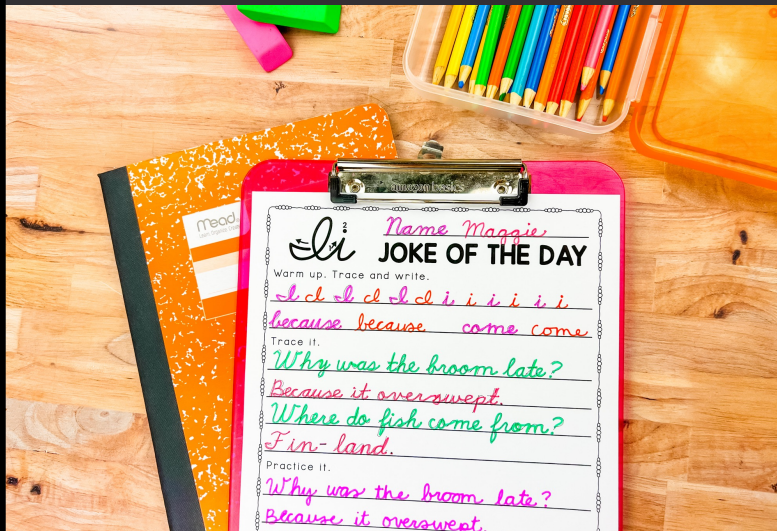 Mead
amazon basics
Name Maggie
Ii
JOKE OF THE DAY
Warm up. Trace and write.
I I I I I I i i i i i i
because because come come
Trace it.
Why was the broom late?
Because it overswept.
Where do fish come from?
Fin-land.
Practice it.
Why was the broom late?
Because it overswept.